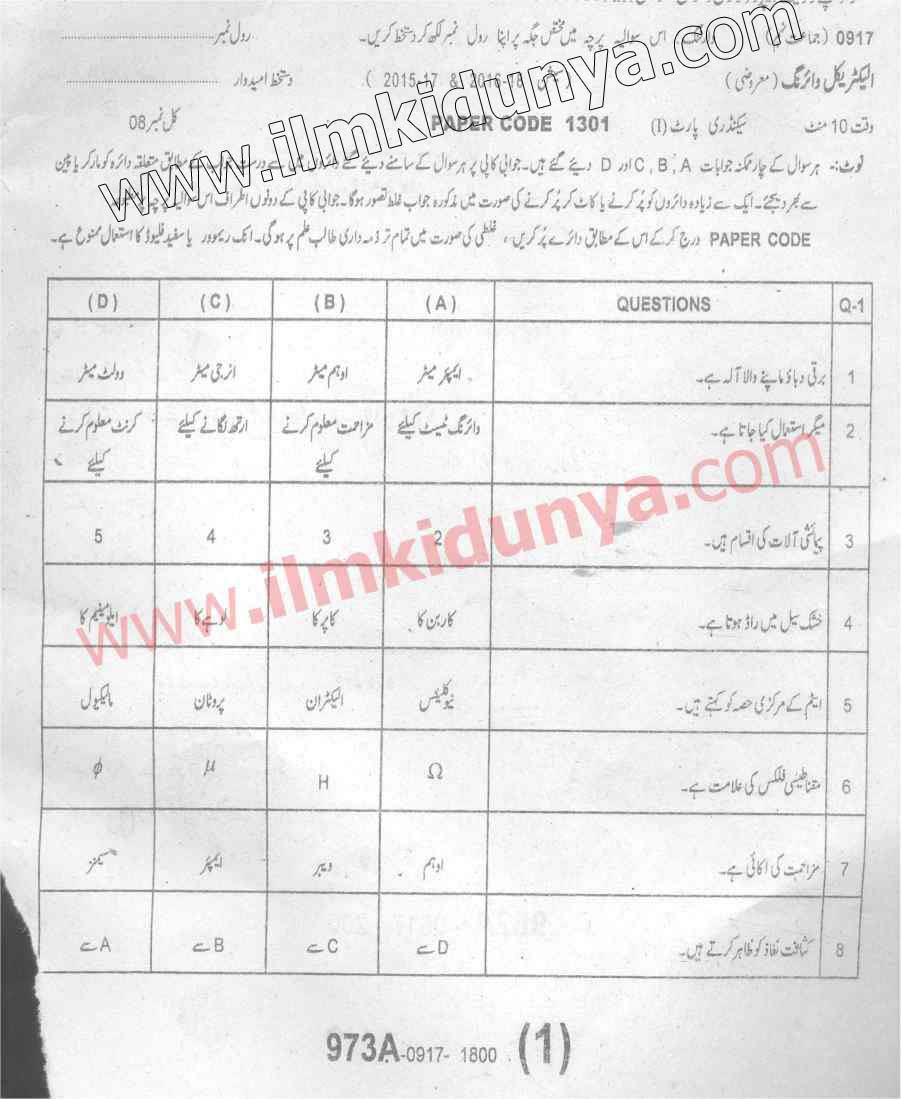 0917 (جماعت نہم) وائرنگ۔ اس سوالیہ پرچہ میں مختص جگہ پر اپنا رول نمبر لکھ کر دستخط کریں۔ رول نمبر
الیکٹریکل وائرنگ (معروضی) (سیشن 2015-17 & 2016-18) دستخط امیدوار
وقت 10 منٹ سیکنڈری پارٹ (I) PAPER CODE 1301 کل نمبر 08
نوٹ:- ہر سوال کے چار ممکنہ جوابات A, B, C اور D دیئے گئے ہیں۔ جوابی کاپی پر ہر سوال کے سامنے دیئے گئے دائروں میں سے درست جواب کے مطابق متعلقہ دائرہ کو مارکر یا پین
سے بھر دیجئے۔ ایک سے زیادہ دائروں کو پُر کرنے یا کاٹ کر پُر کرنے کی صورت میں مذکورہ جواب غلط تصور ہوگا۔ جوابی کاپی کے دونوں اطراف اس سوالیہ پرچہ پر
PAPER CODE درج کر کے اس کے مطابق دائرے پُر کریں، غلطی کی صورت میں تمام تر ذمہ داری طالب علم پر ہوگی۔ انک ریموور یا سفید فلیوڈ کا استعمال ممنوع ہے۔
www.ilmkidunya.com
Q-1 QUESTIONS (A) (B) (C) (D)
1 برقی دباؤ ماپنے والا آلہ ہے۔ ایمپئر میٹر اوہم میٹر انرجی میٹر وولٹ میٹر
2 میگر استعمال کیا جاتا ہے۔ وائرنگ ٹیسٹ کیلئے مزاحمت معلوم کرنے کیلئے ارتھ لگانے کیلئے کرنٹ معلوم کرنے کیلئے
3 پیمائشی آلات کی اقسام ہیں۔ 2 3 4 5
www.ilmkidunya.com
4 خشک سیل میں راڈ ہوتا ہے۔ کاربن کا کاپر کا لوہے کا ایلومینیم کا
5 ایٹم کے مرکزی حصہ کو کہتے ہیں۔ نیوکلیئس الیکٹران پروٹان مالیکیول
6 مقناطیسی فلکس کی علامت ہے۔ Ω H μ ϕ
7 مزاحمت کی اکائی ہے۔ اوہم ویبر ایمپئر سیمنز
8 کثافت نفاذ کو ظاہر کرتے ہیں۔ D سے C سے B سے A سے
973A-0917- 1800 (1)